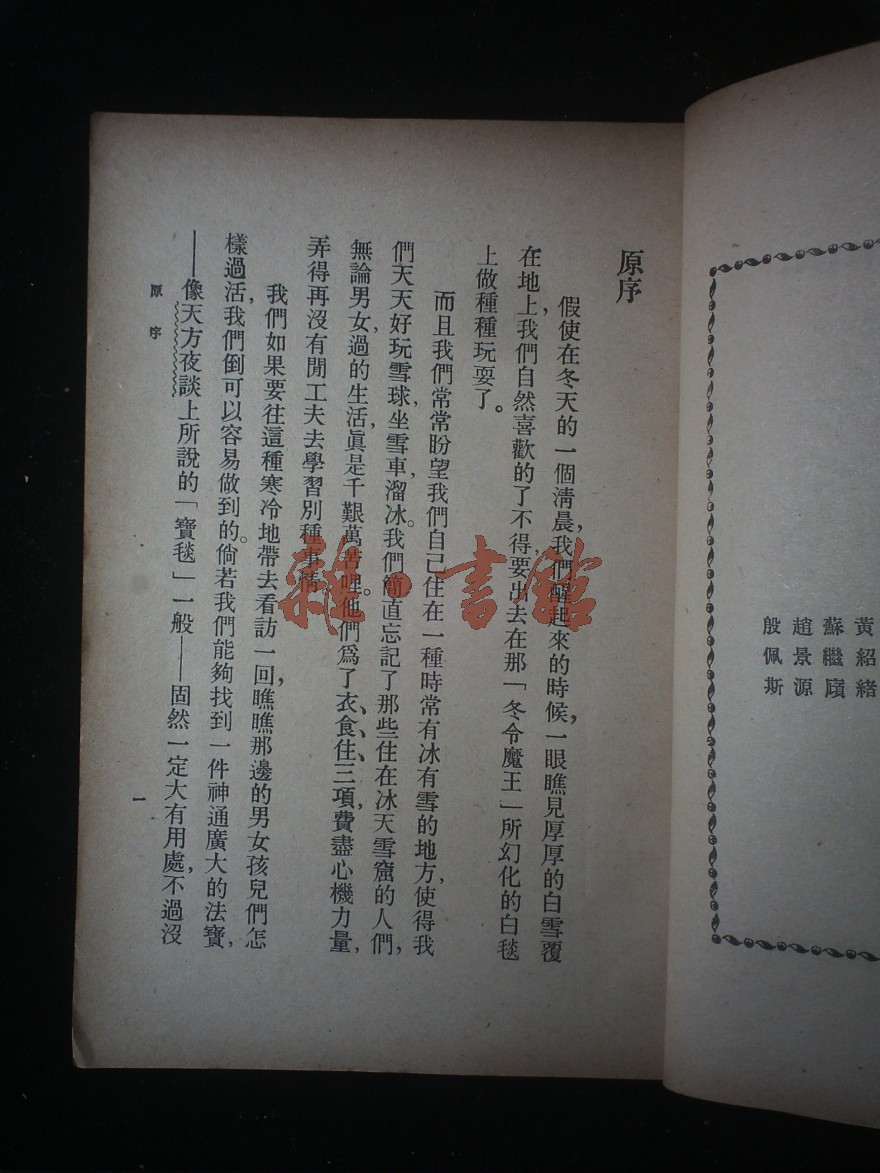 黃紹緒
蘇繼廎
趙景源
殷佩斯
原序
假使在冬天的一個淸晨，我們醒起來的時候，一眼瞧見厚厚的白雪覆
在地上，我們自然喜歡的了不得，要出去在那「冬令魔王」所幻化的白毯
上做種種玩耍了。
而且我們常常盼望我們自己住在一種時常有冰有雪的地方，使得我
們天天好玩雪球，坐雪車，溜冰。我們簡直忘記了那些住在冰天雪窟的人們，
無論男女，過的生活，眞是千艱萬苦哩。他們爲了衣、食、住、三項，費盡心機力量，
弄得再沒有閒工夫去學習別種事情。
我們如果要往這種寒冷地帶去看訪一回，瞧瞧那邊的男女孩兒們怎
樣過活，我們倒可以容易做到的。倘若我們能夠找到一件神通廣大的法寶，
——像天方夜談上所說的「寶毯」一般——固然一定大有用處，不過沒
原序
一
雜·書館